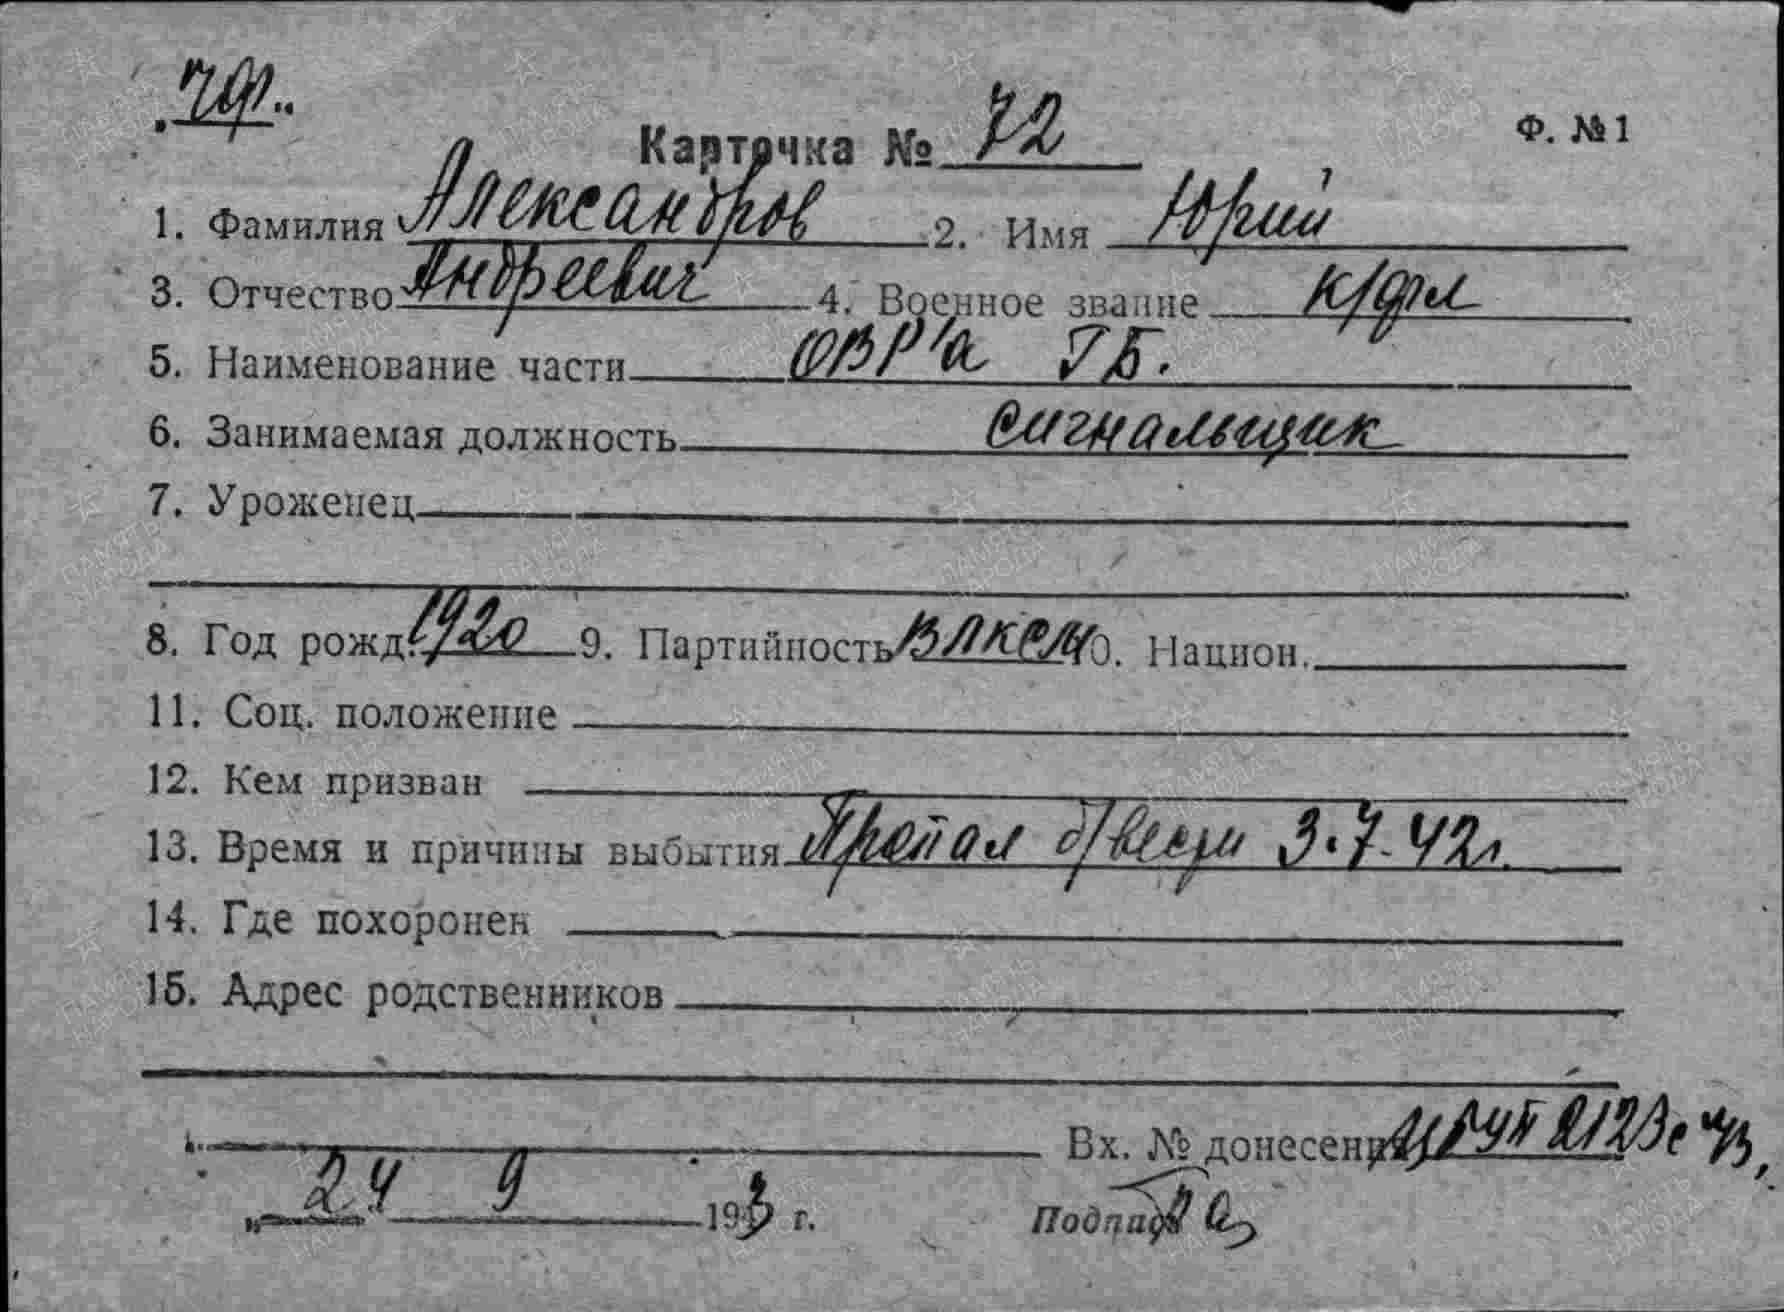 Карточка № 72
Ф. № 1
1. Фамилия Александров 2. Имя Юрий
3. Отчество Андреевич 4. Военное звание к/фл
5. Наименование части ОВР'а ГБ.
6. Занимаемая должность сигнальщик
7. Уроженец
8. Год рожд. 1920 9. Партийность ВЛКСМ 10. Национ.
11. Соц. положение
12. Кем призван
13. Время и причины выбытия Пропал б/вести 3.7.42г.
14. Где похоронен
15. Адрес родственников
Вх. № донесения 2123с 43
„24 9 1943 г.
Подпись